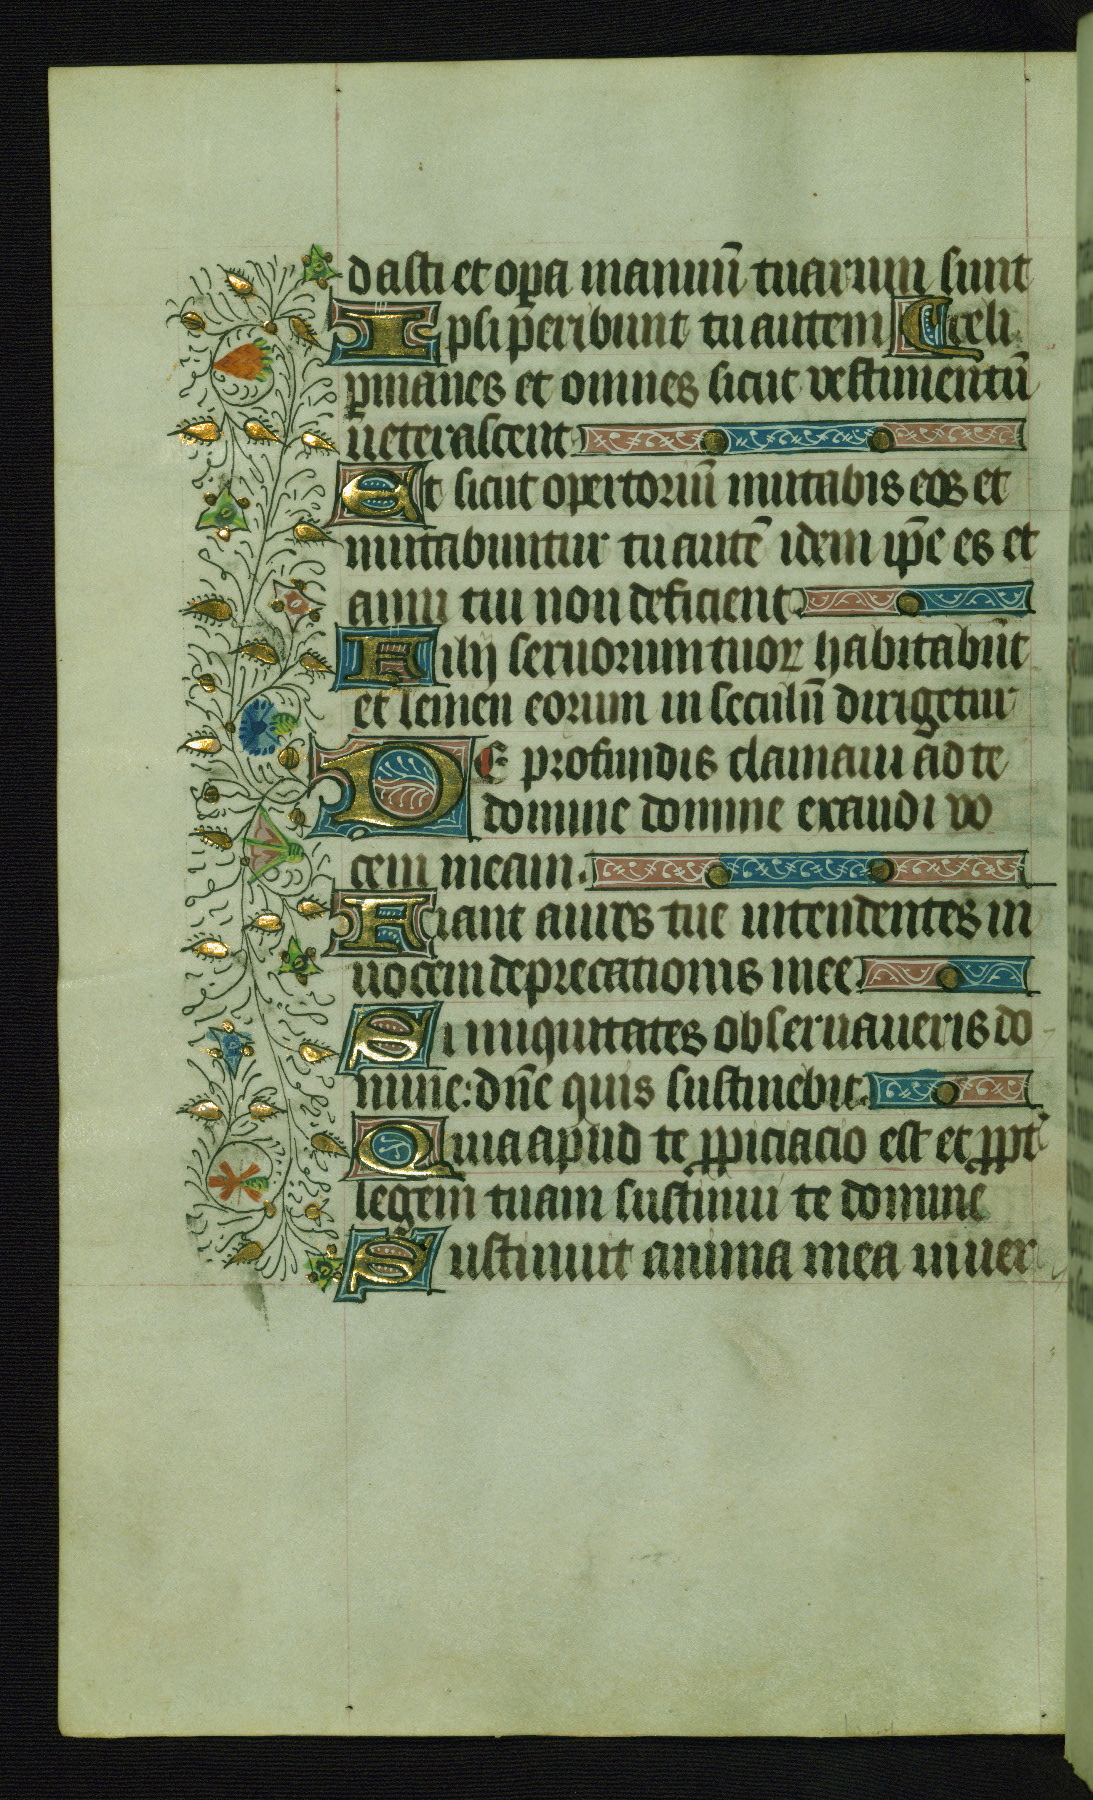 dasti et opa manuū tuarum sunt celi.
Ipsi peribunt tu autem
pmanes et omnes sicut vestimentū
ueterascent
Et sicut opertoriū mutabis eos et
mutabuntur tu autē idem ip̄e es et
anni tui non deficient
Filij seruorum tuoꝝ habitabūt
et semen eorum in seculū dirigetur
De profundis clamaui ad te
domine domine exaudi vo
cem meam.
Fiant aures tue intendentes in
uocem deprecationis mee
Si iniquitates obseruaueris do
mine: dn̄e quis sustinebit.
Quia apud te ꝓpiciacio est et ꝓpt̄
legem tuam sustinui te domine
Sustinuit anima mea in uer